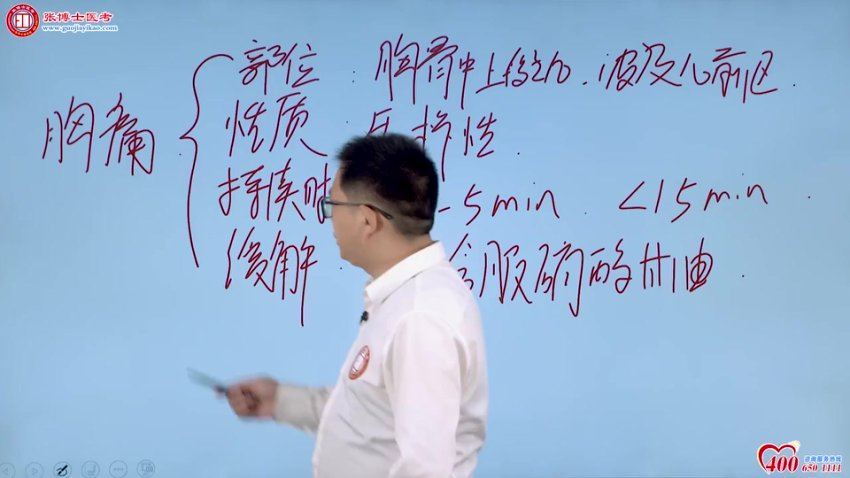 张博士医考
www.guojiayikao.com
胸痛
部位：胸骨中上段之后、波及心前区.
性质 压榨性.
持续时 -5min <15min.
缓解：含服硝酸甘油.
咨询服务热线
400
650 1111